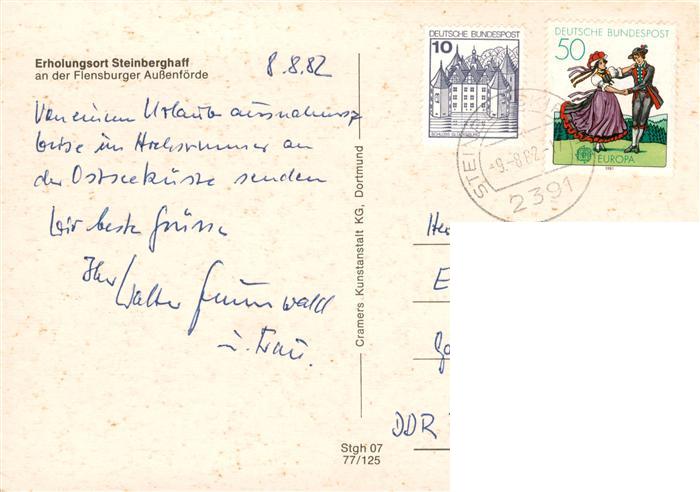 Erholungsort Steinberghaff
an der Flensburger Außenförde
8.8.82
Von einem Urlaub ausnahms-
weise im Hochsommer an
der Ostseeküste senden
wir beste Grüsse
Ihr Walter Grunwald
u. Frau.
Cramers Kunstanstalt KG, Dortmund
Stgh 07
77/125
DEUTSCHE BUNDESPOST
10
DEUTSCHE BUNDESPOST
50
EUROPA
1981
-9.-8.82
2391
DDR